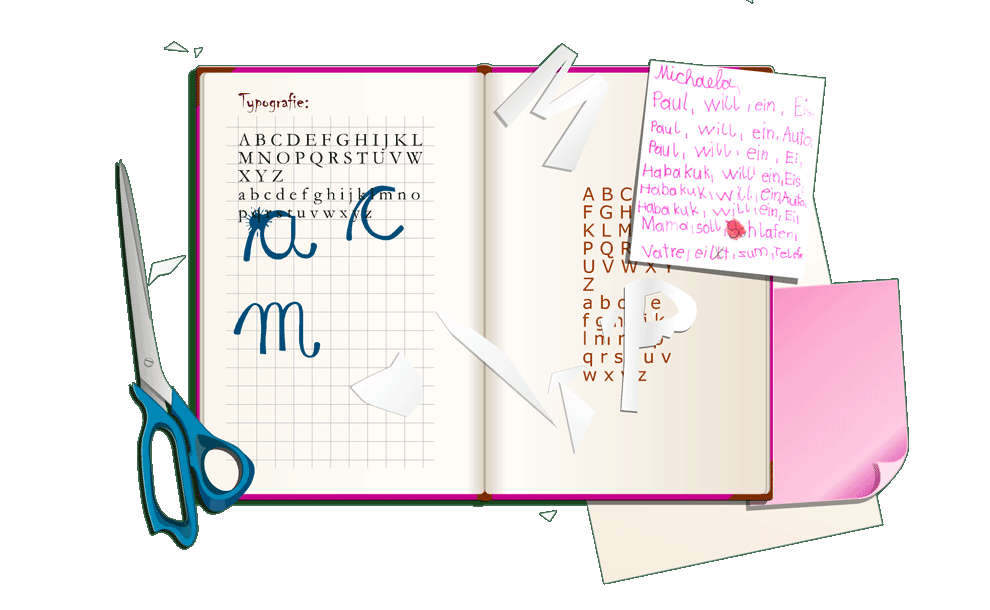 Typografie:
ABCDEFGHIJKL
MNOPQRSTUVW
XYZ
abcdefghijklmno
pqrstuvwxyz
a c
m
M
P
A B C
F G H
K L M
P Q R
U V W X Y
Z
a b c d e
f g h i j k
l m n o p
q r s t u v
w x y z
Michaela,
Paul, will, ein, Eis,
Paul, will, ein, Auto,
Paul, will, ein, Ei,
Habakuk, will, ein, Eis,
Habakuk, will, ein, Auto,
Habakuk, will, ein, Ei
Mama, soll, schlafen,
Vatre, eilt, sum, Telefe